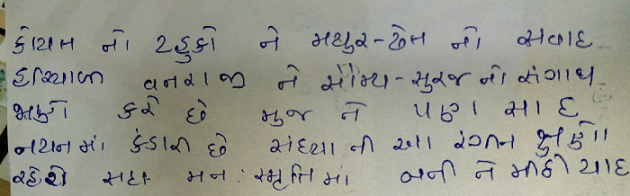 કોયલ નો ટહુકો ને મયુર-ઢેલ નો સંવાદ
હરિયાળી વનરાજી ને સૌમ્ય-સુરજ નો સંગાથ
કરે છે મુજ ને પણ સાદ
નયન માં કંડારી છે સંધ્યા ની આ રંગીન ક્ષણો
રહેશે સદા મન: સ્મૃતિ માં બની ને મીઠી યાદ